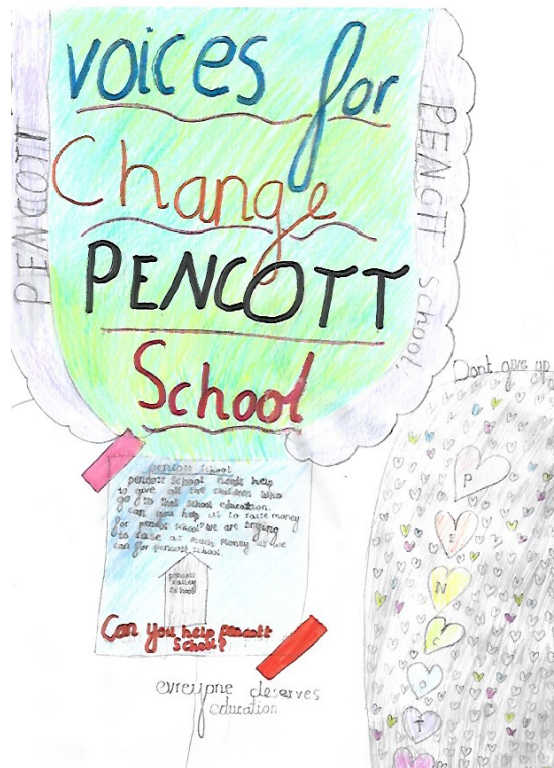 voices for
Change
PENCOTT
School
PENCOTT
PENCTT school!
Dont give up
pencott School
pencott School needs help
to give all the children who
go to that school education.
can you help us to raise money
for pencott school? we are trying
to raise as much money as we
can for pencott school
pencott
valley
school
Can you help Pencott
School?
evreyone deserves
education
P
E
N
C
O
T